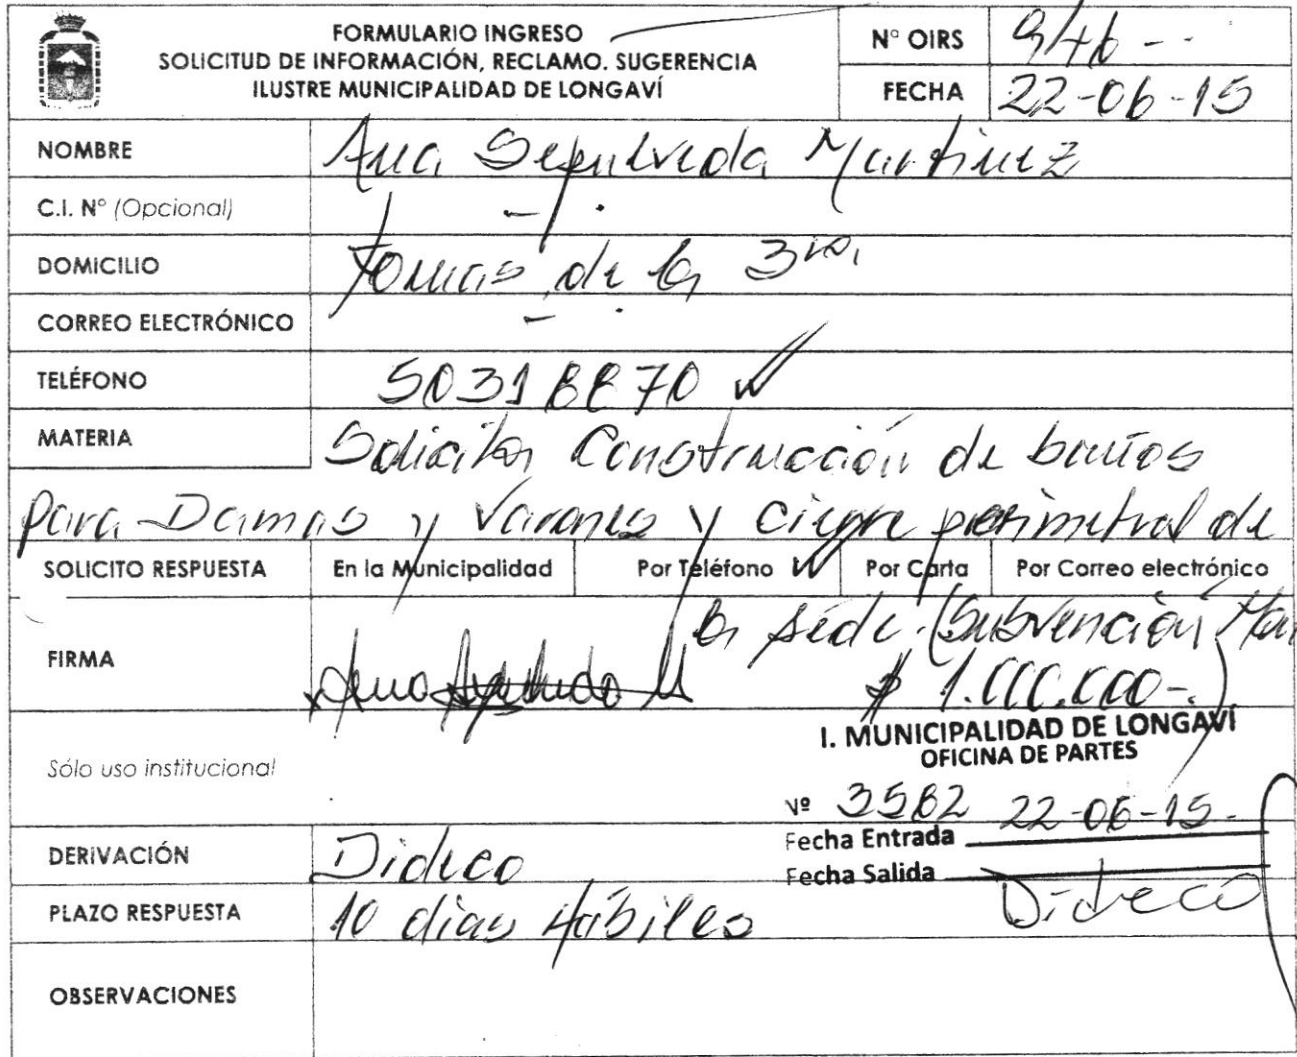 FORMULARIO INGRESO
SOLICITUD DE INFORMACIÓN, RECLAMO. SUGERENCIA
ILUSTRE MUNICIPALIDAD DE LONGAVÍ
N° OIRS 946 --
FECHA 22-06-15
NOMBRE Ana Sepulveda Martinez
C.I. N° (Opcional) -.
DOMICILIO Tomas de la 3ra
CORREO ELECTRÓNICO -.
TELÉFONO 50318870
MATERIA Solicita Construcción de baños
para Damas y Varones y cierre perimetral de
SOLICITO RESPUESTA En la Municipalidad Por Teléfono Por Carta Por Correo electrónico
la sede. (Subvención Mun
$ 1.000.000-.)
FIRMA Ana Sepulveda M
I. MUNICIPALIDAD DE LONGAVÍ
OFICINA DE PARTES
Sólo uso institucional
Nº 3582 22-06-15.
Fecha Entrada
Fecha Salida
DERIVACIÓN Dideco
Dideco
PLAZO RESPUESTA 10 dias Hábiles
OBSERVACIONES